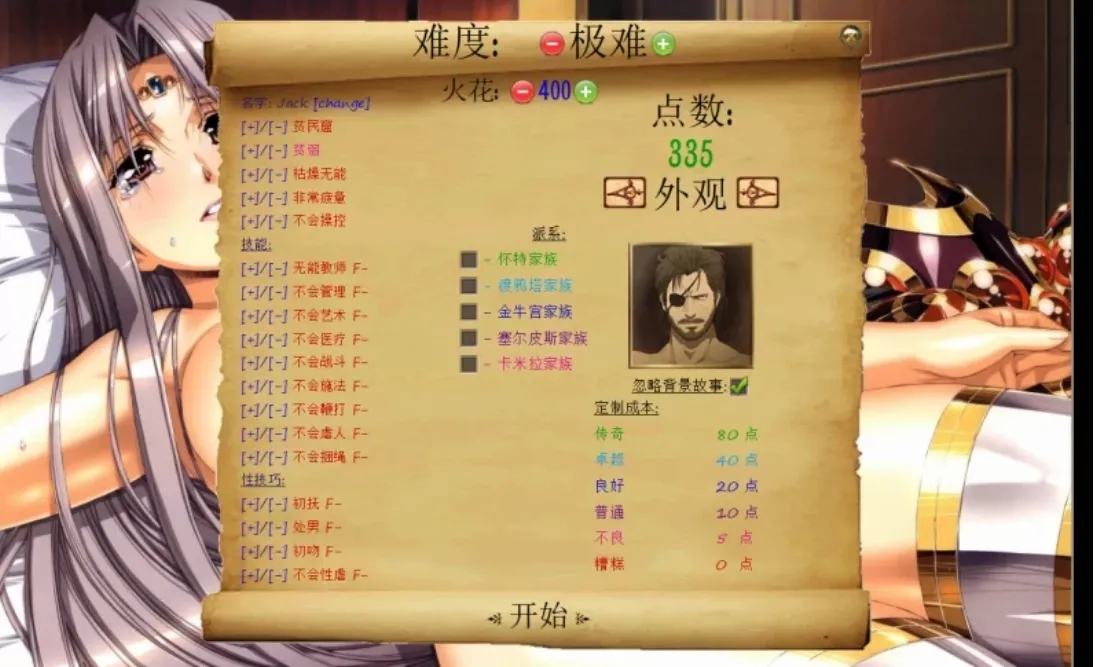 难度: 极难
火花: 400
名字: Jack [change]
[+]/[-] 贫民窟
[+]/[-] 贫弱
[+]/[-] 枯燥无能
[+]/[-] 非常疲量
[+]/[-] 不会操控
技能:
[+]/[-] 无能教师 F-
[+]/[-] 不会管理 F-
[+]/[-] 不会艺术 F-
[+]/[-] 不会医疗 F-
[+]/[-] 不会战斗 F-
[+]/[-] 不会施法 F-
[+]/[-] 不会鞭打 F-
[+]/[-] 不会虐人 F-
[+]/[-] 不会捆绳 F-
性技巧:
[+]/[-] 初抚 F-
[+]/[-] 处男 F-
[+]/[-] 初吻 F-
[+]/[-] 不会性虐 F-
派系:
- 怀特家族
- 渡鸦塔家族
- 金牛宫家族
- 塞尔皮斯家族
- 卡米拉家族
点数:
335
外观
忽略背景故事:
定制成本:
传奇 80 点
卓越 40 点
良好 20 点
普通 10 点
不良 5 点
糟糕 0 点
开始